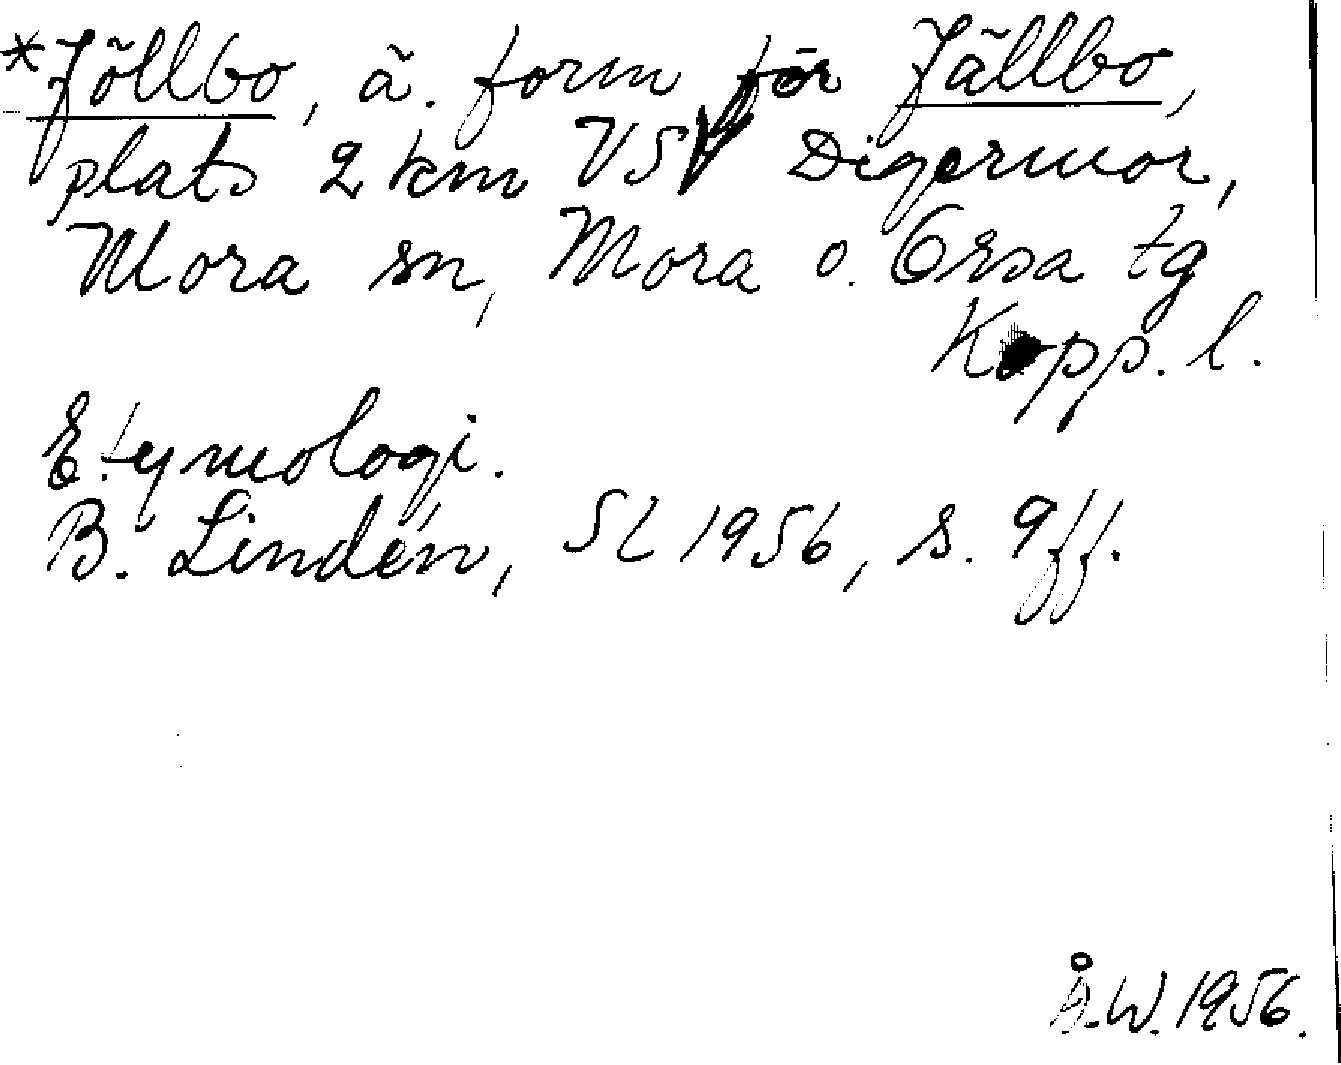 *Jöllbo, ä. form för Jällbo,
plats 2 km VSV Digermor,
Mora sn, Mora o. Orsa tg
Kopp. l.
Etymologi.
B. Lindén, SL 1956, s. 9ff.
Å.W. 1956.